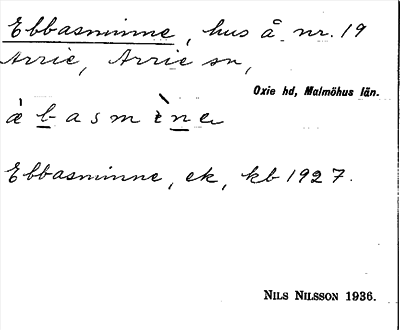 Ebbasminne, hus å nr. 19
Arrie, Arrie sn,
Oxie hd, Malmöhus län.
æ̀ b a s m ì n e
Ebbasminne, ek, kb 1927.
NILS NILSSON 1936.